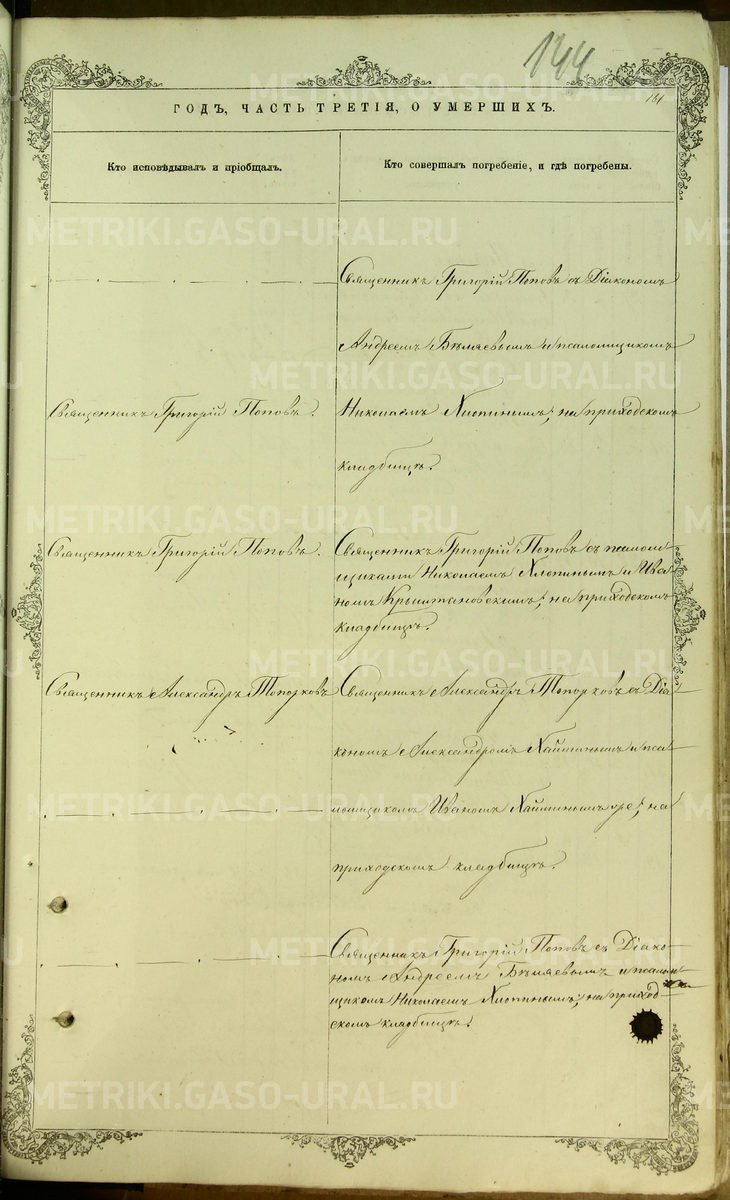 144
ГОДЪ, ЧАСТЬ ТРЕТІЯ, О УМЕРШИХЪ.
Кто исповѣдывалъ и пріобщалъ.
Кто совершалъ погребеніе, и гдѣ погребены.
Священникъ Григорій Поповъ съ Діакономъ
Андреемъ Бѣляевымъ и псаломщикомъ
Священникъ Григорій Поповъ.
Николаемъ Хлопинымъ; на приходскомъ
кладбищѣ.
Священникъ Григорій Поповъ.
Священникъ Григорій Поповъ съ псалом
щиками Николаемъ Хлопинымъ и Ива
номъ Крыжановскимъ; на приходскомъ
кладбищѣ.
Священникъ Александръ Топорковъ
Священникъ Александръ Топорковъ съ Діа
кономъ Александромъ и пса
ломщикомъ Иваномъ на
приходскомъ кладбищѣ.
Священникъ Григорій Поповъ съ Діако-
номъ Андреемъ Бѣляевымъ и псалом
щикомъ Николаемъ Хлопинымъ; на приход
скомъ кладбищѣ.
METRIKI.GASO-URAL.RU